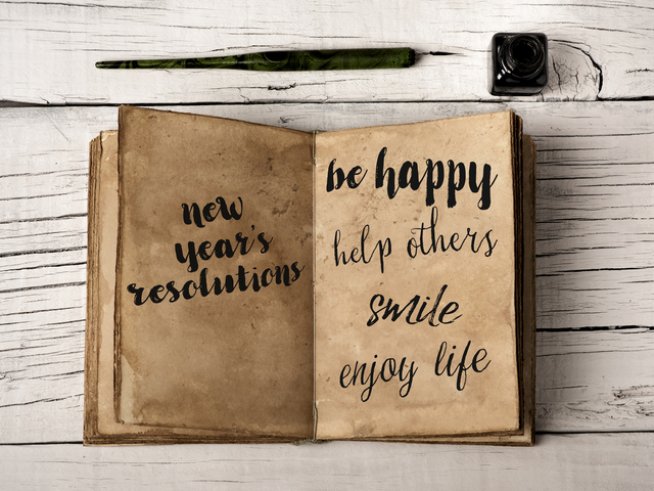 new
year's
resolutions
be happy
help others
smile
enjoy life